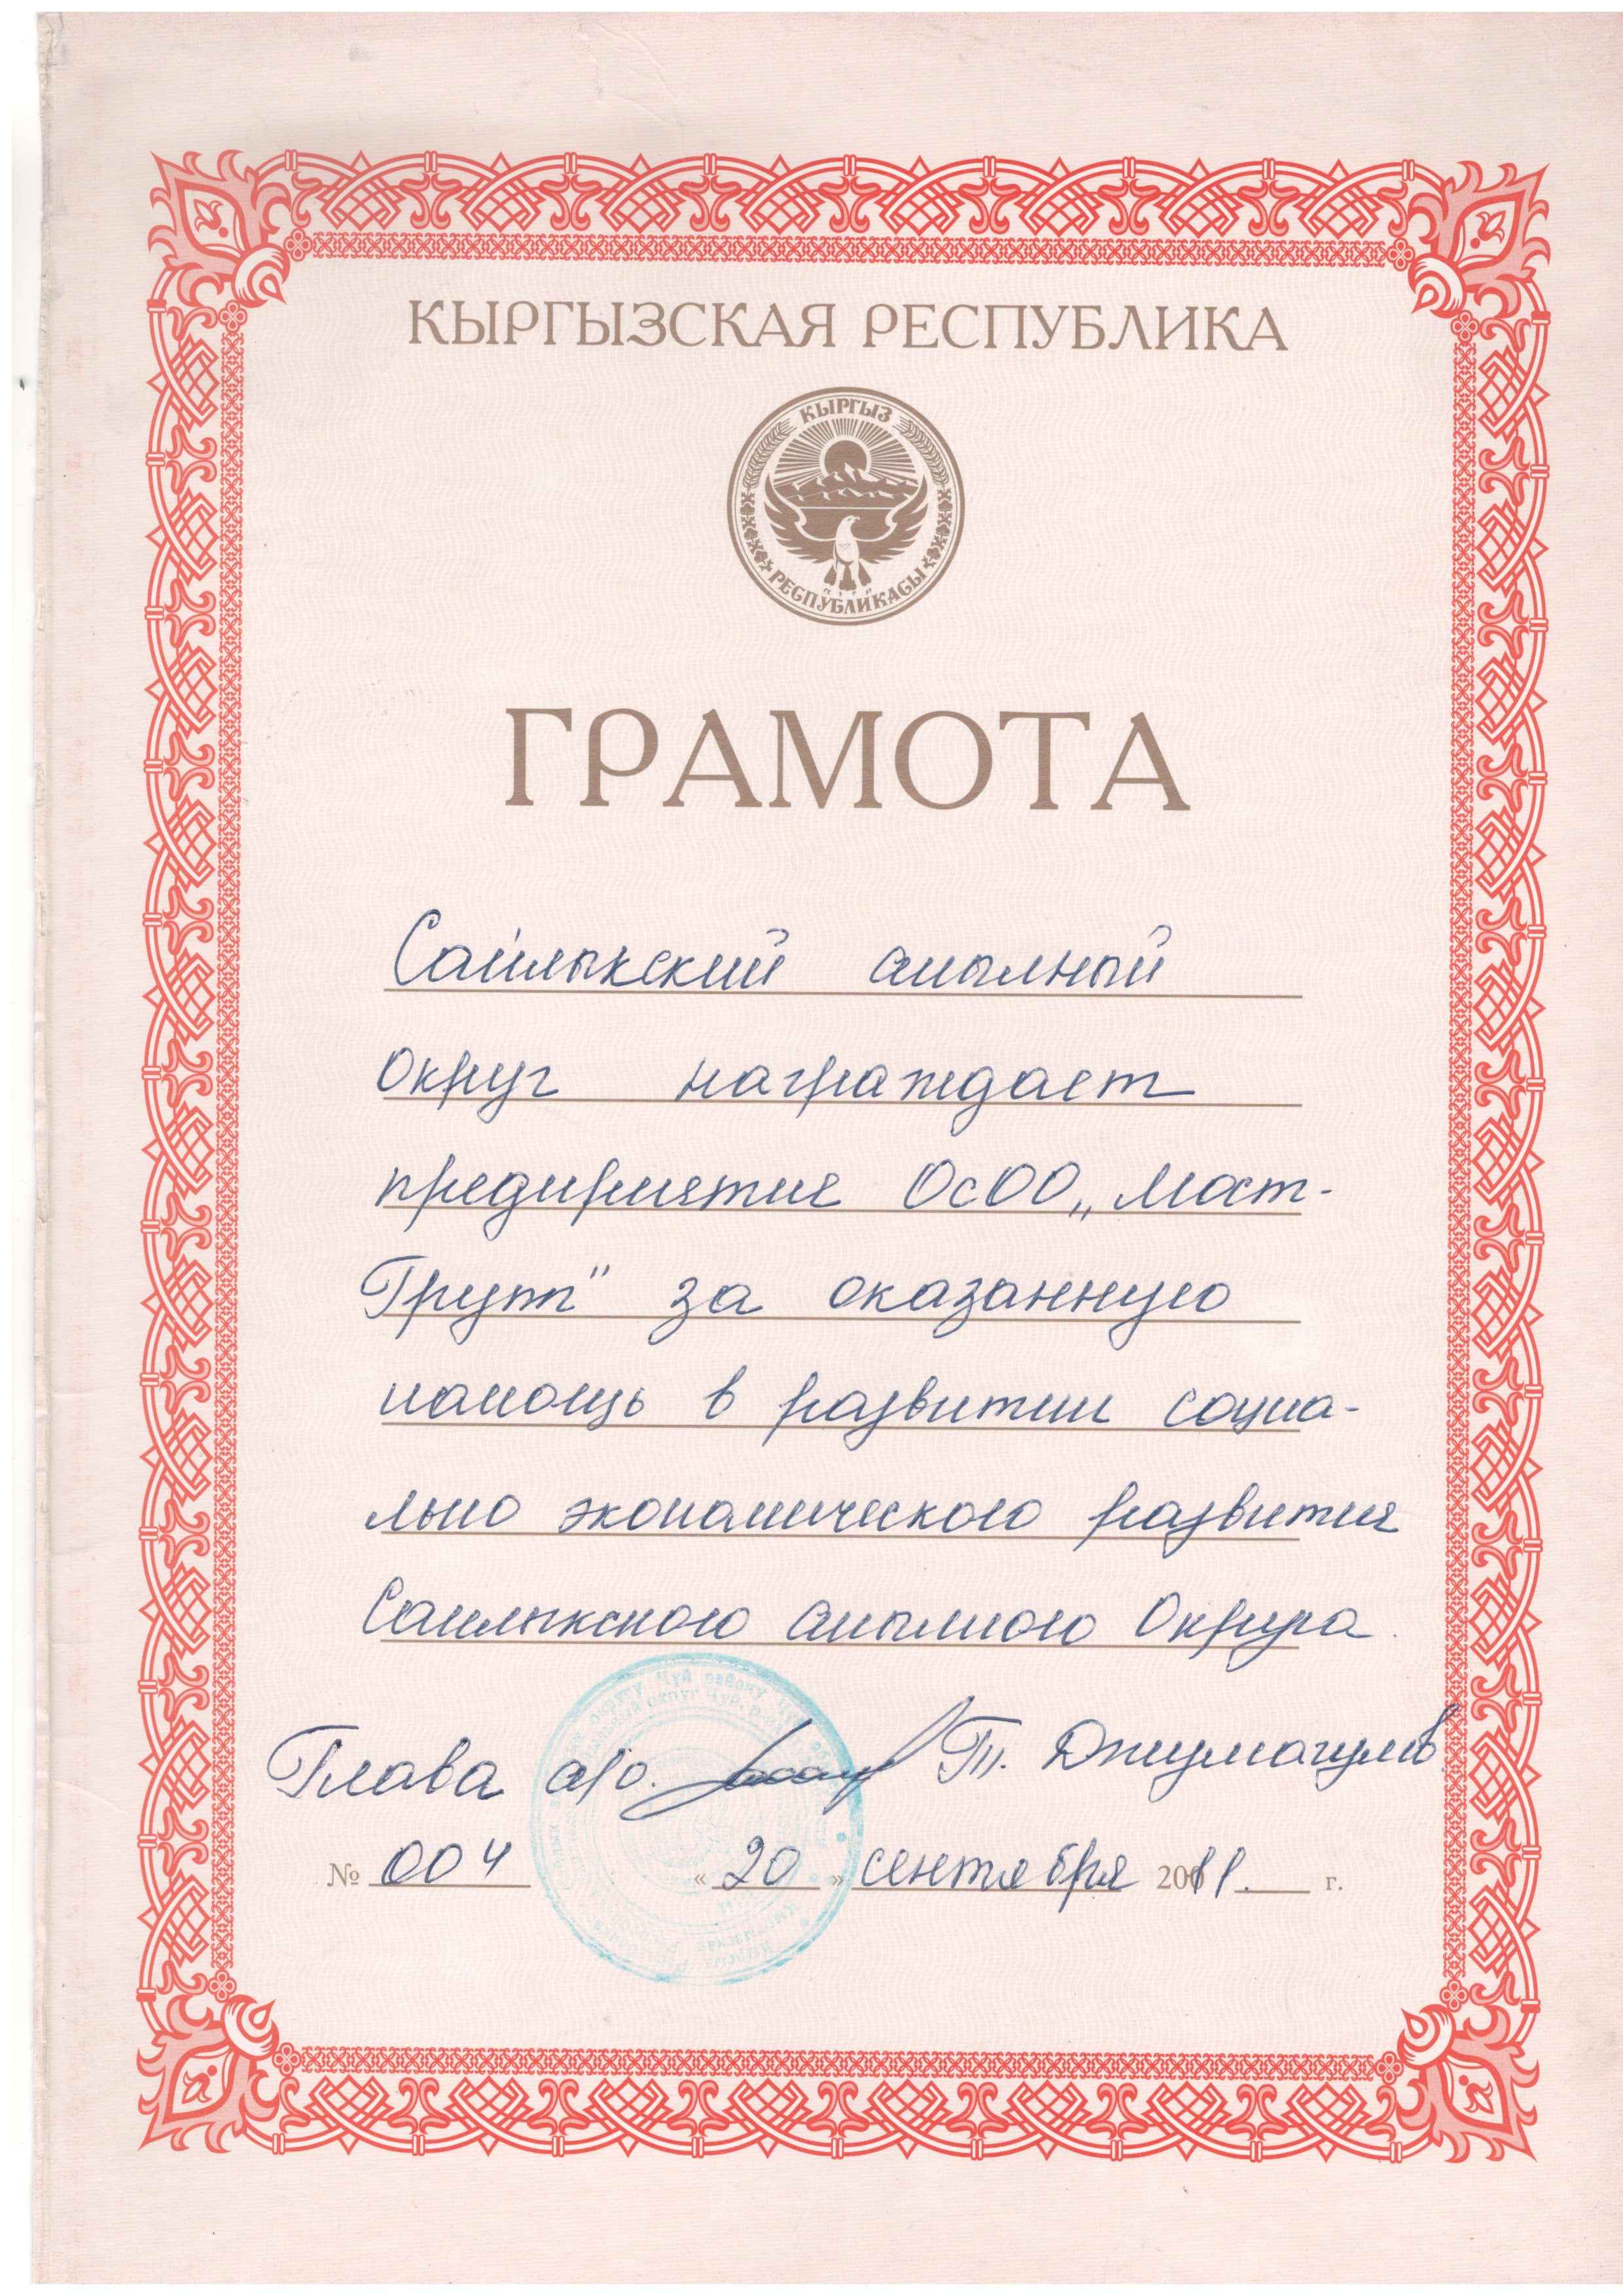 КЫРГЫЗСКАЯ РЕСПУБЛИКА
КЫРГЫЗ
РЕСПУБЛИКАСЫ
ГРАМОТА
Сайлыкский аиылный
Округ награждает
предприятие ОсОО „Мост-
Групп" за оказанную
помощь в развитии социа-
льно экономического развития
Саилыкского аиылного Округа.
Глава а/о. Т. Джумагулов
№ 004 « 20 » сентября 2011. г.